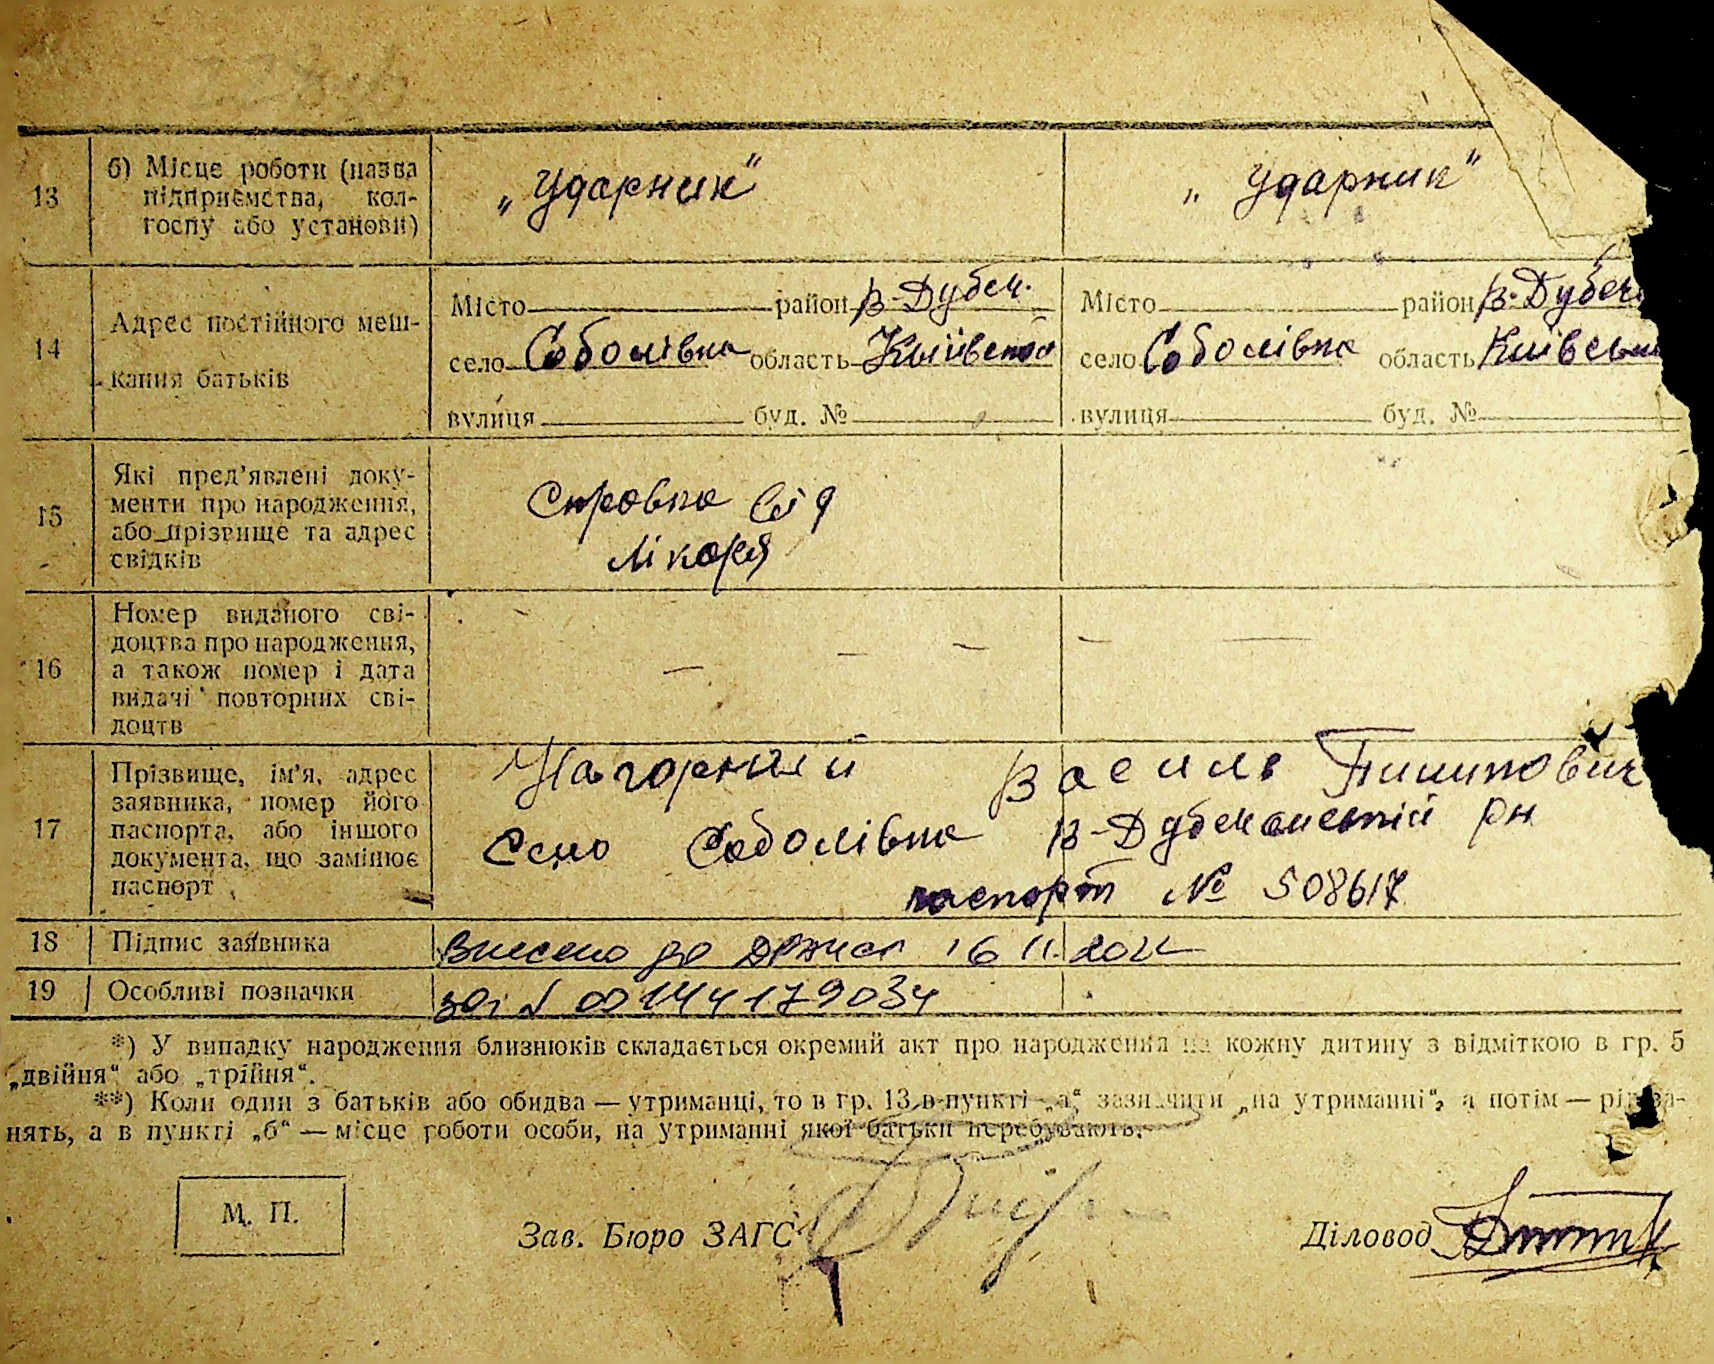 13 б) Місце роботи (назва підприємства, колгоспу або установи) „Ударник“ „Ударник“
14 Адрес постійного мешкання батьків
Місто район В-Дубеч. Місто район В-Дубеч
село Соболівка область Київської село Соболівка область Київськ
вулиця буд. № вулиця буд. №
15 Які пред'явлені документи про народження, або прізвище та адрес свідків
Справка від
лікаря
16 Номер виданого свідоцтва про народження, а також номер і дата видачі повторних свідоцтв — — — — —
17 Прізвище, ім'я, адрес заявника, номер його паспорта, або іншого документа, що замінює паспорт
Нагорний Василь Пилипович
Село Соболівка В-Дубечанській рн
паспорт № 508617
18 Підпис заявника Внесено до ДРАЦС 16 11. 2022
19 Особливі позначки за № 00144179034
*) У випадку народження близнюків складається окремий акт про народження на кожну дитину з відміткою в гр. 5
„двійня“ або „трійня“.
**) Коли один з батьків або обидва — утриманці, то в гр. 13 в пункті „а“ зазначити „на утриманні“, а потім — рід за-
нять, а в пункті „б“ — місце роботи особи, на утриманні якої батьки перебувають.
М. П.
Зав. Бюро ЗАГС Діловод